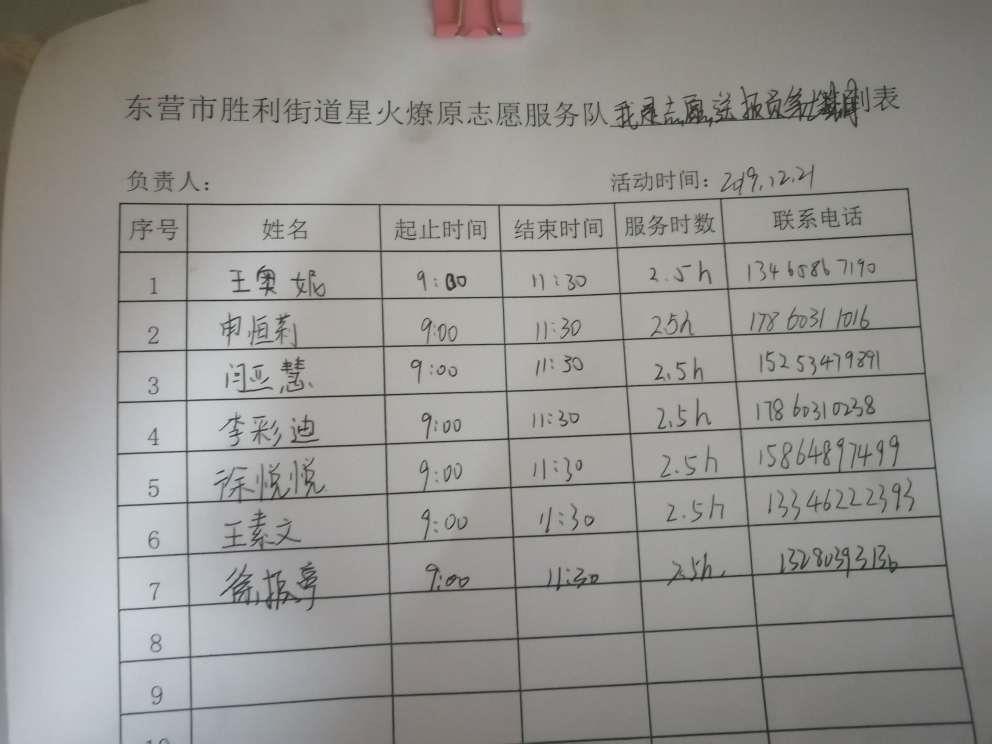 东营市胜利街道星火燎原志愿服务队我是志愿送报员 表
负责人: 活动时间:2019.12.21
序号 姓名 起止时间 结束时间 服务时数 联系电话
1 王奥妮 9:00 11:30 2.5h 13465867190
2 申恒莉 9:00 11:30 2.5h 17860311016
3 闫亚慧 9:00 11:30 2.5h 15253479891
4 李彩迪 9:00 11:30 2.5h 17860310238
5 徐悦悦 9:00 11:30 2.5h 15864897499
6 王素文 9:00 11:30 2.5h 13346222393
7 徐振亭 9:00 11:30 2.5h. 13280393136
8
9
10